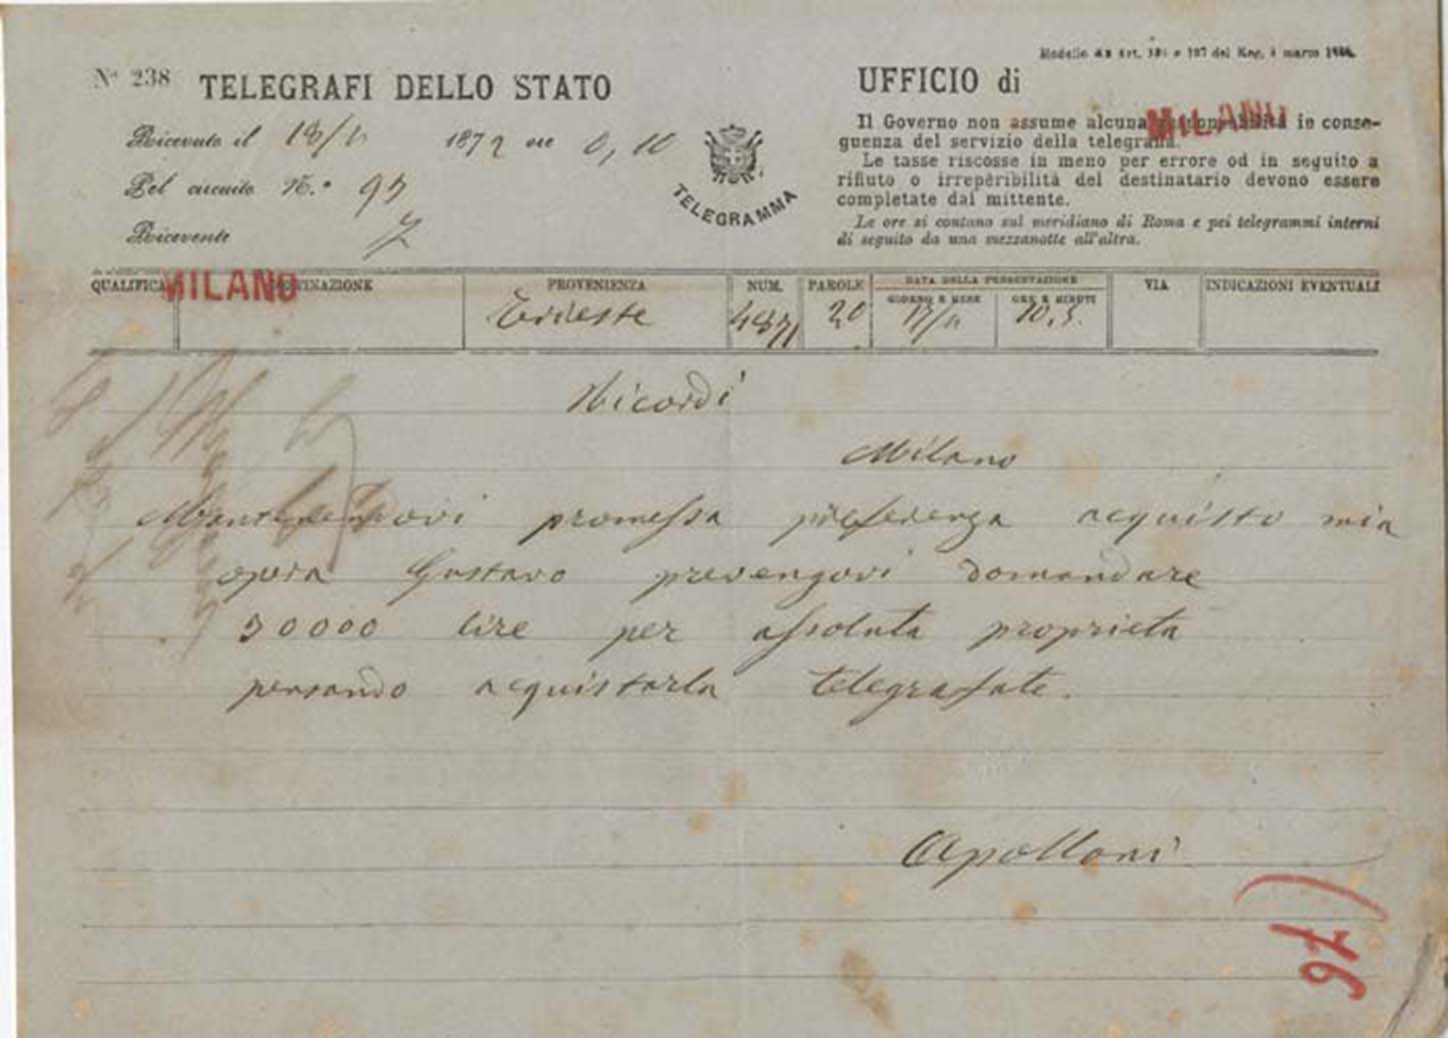 Modello Art. 197 del Reg. marzo
N° 238 TELEGRAFI DELLO STATO
UFFICIO di
MILANO
Ricevuto il 18/11 1872 ore 0,10
Pel circuito N.° 97
Ricevente
TELEGRAMMA
Il Governo non assume alcuna responsabilità in conse-
guenza del servizio della telegrafia.
Le tasse riscosse in meno per errore od in seguito a
rifiuto o irreperibilità del destinatario devono essere
completate dal mittente.
Le ore si contano sul meridiano di Roma e pei telegrammi interni
di seguito da una mezzanotte all'altra.
QUALIFICA DESTINAZIONE PROVENIENZA NUM. PAROLE DATA DELLA PRESENTAZIONE VIA INDICAZIONI EVENTUALI
GIORNO E MESE ORE E MINUTI
MILANO
Trieste 4871 20 17/11 10,5.
Ricordi
Milano
Mantenendovi promessa preferenza acquisto mia
opera Gustavo prevengovi domandare
30000 lire per assoluta proprieta
pensando acquistarla telegrafate.
Apolloni
76